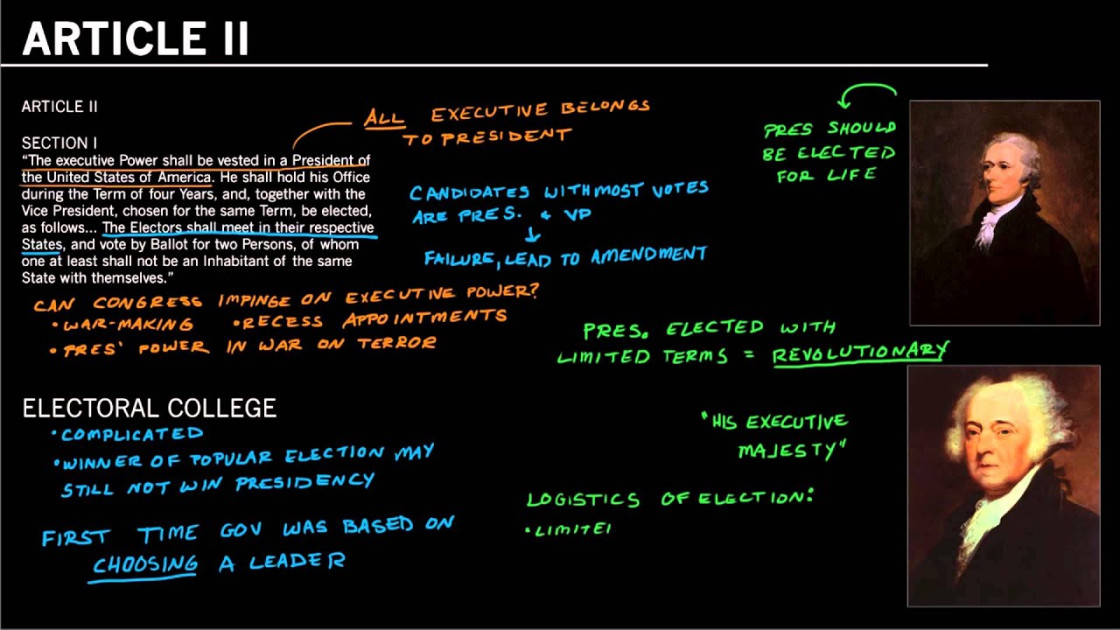 ARTICLE II
ARTICLE II
SECTION I
"The executive Power shall be vested in a President of
the United States of America. He shall hold his Office
during the Term of four Years, and, together with the
Vice President, chosen for the same Term, be elected,
as follows... The Electors shall meet in their respective
States, and vote by Ballot for two Persons, of whom
one at least shall not be an Inhabitant of the same
State with themselves."
ALL EXECUTIVE BELONGS
TO PRESIDENT
CANDIDATES WITH MOST VOTES
ARE PRES. & VP
FAILURE, LEAD TO AMENDMENT
PRES SHOULD
BE ELECTED
FOR LIFE
CAN CONGRESS IMPINGE ON EXECUTIVE POWER?
• WAR-MAKING • RECESS APPOINTMENTS
• PRES' POWER IN WAR ON TERROR
PRES. ELECTED WITH
LIMITED TERMS = REVOLUTIONARY
ELECTORAL COLLEGE
• COMPLICATED
• WINNER OF POPULAR ELECTION MAY
STILL NOT WIN PRESIDENCY
FIRST TIME GOV WAS BASED ON
CHOOSING A LEADER
"HIS EXECUTIVE
MAJESTY"
LOGISTICS OF ELECTION:
• LIMITEI